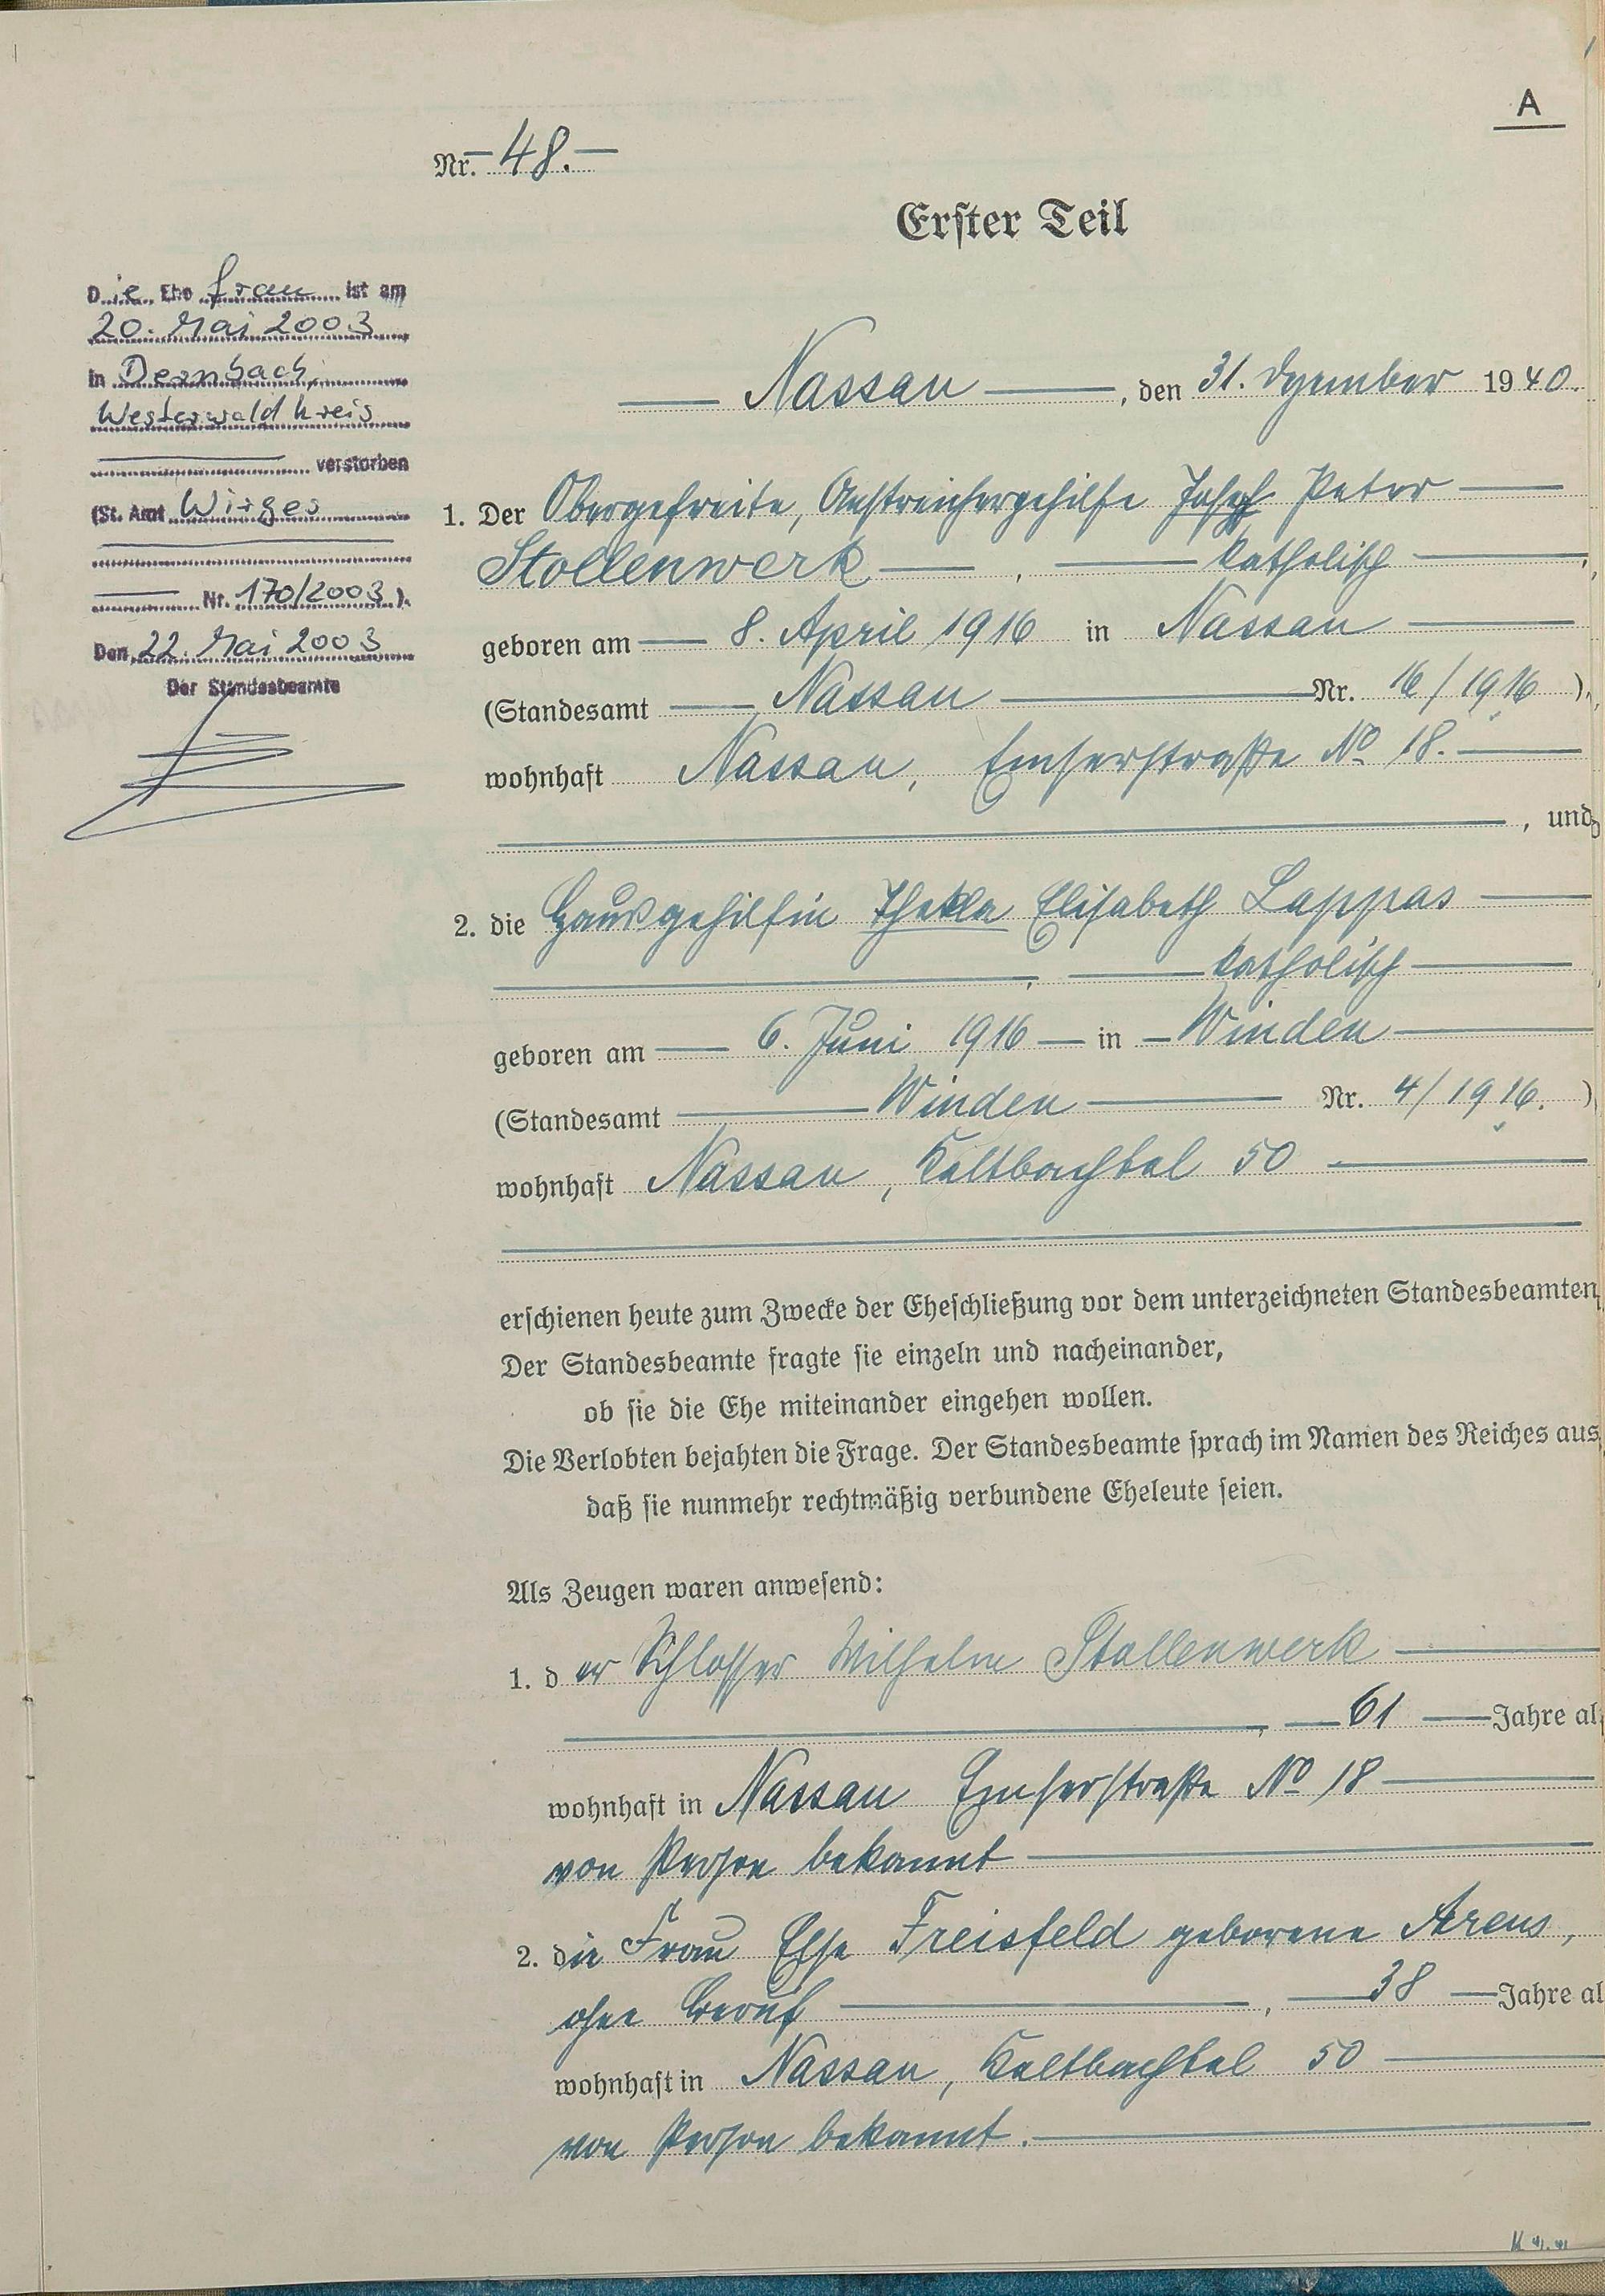 A
Nr. 48.
Erster Teil
Die Ehefrau ist am
20. Mai 2003
in Dernbach,
Westerwaldkreis
verstorben
(St. Amt Wirges
Nr. 170/2003).
Den 22. Mai 2003
Der Standesbeamte
Nassau, den 31. Dezember 1940.
1. Der Obergefreite, Anstreichergehilfe Joseph Peter
Stollenwerk, katholisch,
geboren am 8. April 1916 in Nassau
(Standesamt Nassau Nr. 16/1916),
wohnhaft Nassau, Emserstraße No 18.
, und
2. die Hausgehilfin Thekla Elisabeth Lappas
, katholisch
geboren am 6. Juni 1916 in Winden
(Standesamt Winden Nr. 4/1916.)
wohnhaft Nassau, Kaltbachtal 50
erschienen heute zum Zwecke der Eheschließung vor dem unterzeichneten Standesbeamten
Der Standesbeamte fragte sie einzeln und nacheinander,
ob sie die Ehe miteinander eingehen wollen.
Die Verlobten bejahten die Frage. Der Standesbeamte sprach im Namen des Reiches aus
daß sie nunmehr rechtmäßig verbundene Eheleute seien.
Als Zeugen waren anwesend:
1. der Schlosser Wilhelm Stollenwerk
, 61 Jahre al
wohnhaft in Nassau Emserstraße No 18
von Person bekannt
2. die Frau Else Freisfeld geborene Arens,
ohne Beruf, 38 Jahre al
wohnhaft in Nassau, Kaltbachtal 50
von Person bekannt.